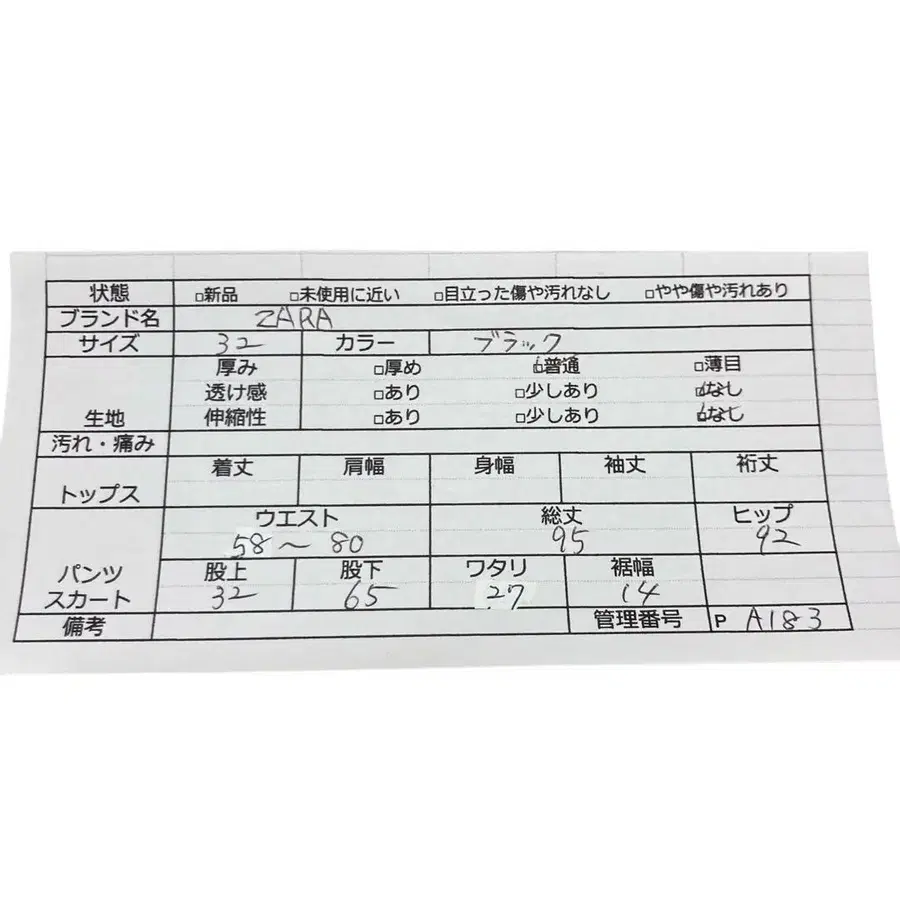 状態 □新品 □未使用に近い □目立った傷や汚れなし □やや傷や汚れあり
ブランド名 ZARA
サイズ 32 カラー ブラック
厚み □厚め □普通 □薄目
透け感 □あり □少しあり □なし
生地 伸縮性 □あり □少しあり □なし
汚れ・痛み
着丈 肩幅 身幅 袖丈 裄丈
トップス
ウエスト 総丈 ヒップ
58～80 95 92
パンツ 股上 股下 ワタリ 裾幅
スカート 32 65 27 14
備考 管理番号 P A183